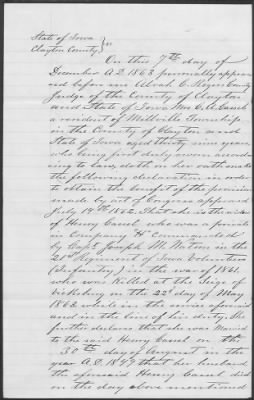 State of Iowa
Clayton County } ss
On this 7th day of
December A.D. 1863 personally appea-
red before me Alvah C. Rogers County
Judge of the County of Clayton
and State of Iowa Mrs E. A.
a resident of Millville Township
in the County of Clayton and
State of Iowa aged thirty nine years
who being first duly sworn accord-
ing to law, doth on her oath make
the following declaration in order
to obtain the benefit of the provision
made by act of Congress approved
July 14th 1862. That she is the widow
of Henry who was a private
in Company "G" Commanded
by Capt Joseph M. Watson in the
21st Regiment of Iowa Volunteers
(Infantry) in the war of 1861.
who was killed at the Seige of
Vicksburg on the 22d day of May
1863 while in the service aforesaid
and in the line of his duty. She
further declares that she was Married
to the said Henry on the
30th day of August in the
year A.D. 1847 that her husband
the aforesaid Henry died
on the day above mentioned